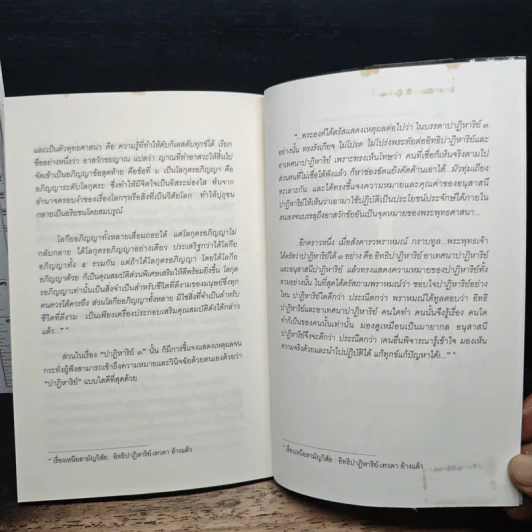 และเป็นตัวพุทธศาสนา คือ ความรู้ที่ทำให้ดับกิเลสดับทุกข์ได้ เรียก
ชื่ออย่างหนึ่งว่า อาสวักขยญาณ แปลว่า ญาณที่ทำอาสวะให้สิ้นไป
จัดเข้าเป็นอภิญญาข้อสุดท้าย คือข้อที่ ๖ เป็นโลกุตรอภิญญา คือ
อภิญญาระดับโลกุตระ ซึ่งทำให้มีจิตใจเป็นอิสระผ่องใส พ้นจาก
อำนาจครอบงำของเรื่องโลกๆหรือสิ่งที่เป็นวิสัยโลก ทำให้ปุถุชน
กลายเป็นอริยชนโดยสมบูรณ์
โลกียอภิญญาทั้งหลายเสื่อมถอยได้ แต่โลกุตรอภิญญาไม่
กลับกลาย ได้โลกุตรอภิญญาอย่างเดียว ประเสริฐกว่าได้โลกีย
อภิญญาทั้ง ๕ รวมกัน แต่ถ้าได้โลกุตรอภิญญา โดยได้โลกีย
อภิญญาด้วย ก็เป็นคุณสมบัติส่วนพิเศษเสริมให้ดีพร้อมยิ่งขึ้น โลกุต
รอภิญญาเท่านั้นเป็นสิ่งจำเป็นสำหรับชีวิตที่ดีงามของมนุษย์ซึ่งทุก
คนควรได้ควรถึง ส่วนโลกียอภิญญาทั้งหลาย มิใช่สิ่งที่จำเป็นสำหรับ
ชีวิตที่ดีงาม เป็นเพียงเครื่องประกอบเสริมคุณสมบัติดังได้กล่าว
แล้ว..”
ส่วนในเรื่อง “ปาฏิหาริย์ ๓” นั้น ก็มีการชี้แจงแสดงเหตุผลจน
กระทั่งผู้ฟังสามารถเข้าถึงความหมายและวินิจฉัยด้วยตนเองด้วยว่า
“ปาฏิหาริย์” แบบใดดีที่สุดด้วย
เรื่องเหนือสามัญวิสัย : อิทธิปาฏิหาริย์-เทวดา อ้างแล้ว
“..พระองค์ได้ตรัสแสดงเหตุผลต่อไปว่า ในบรรดาปาฏิหาริย์ ๓
อย่างนั้น ทรงรังเกียจ ไม่โปรด ไม่โปร่งพระทัยต่ออิทธิปาฏิหาริย์และ
อาเทศนาปาฏิหาริย์ เพราะทรงเห็นโทษว่า คนที่เชื่อก็เห็นจริงตามไป
ส่วนคนที่ไม่เชื่อได้ฟังแล้ว ก็หาช่องขัดแย้งคัดค้านเอาได้...มัวทุ่มเถียง
ทะเลาะกัน และได้ทรงชี้แจงความหมายและคุณค่าของอนุสาสนี
ปาฏิหาริย์ให้เห็นว่าเอามาใช้ปฏิบัติเป็นประโยชน์ประจักษ์ได้ภายใน
ตนเองจนบรรลุถึงอาสวักขัยอันเป็นจุดหมายของพระพุทธศาสนา...
...อีกคราวหนึ่ง เมื่อสังคารวพราหมณ์ กราบทูล...พระพุทธเจ้า
ได้ตรัสว่าปาฏิหาริย์มี ๓ อย่าง คือ อิทธิปาฏิหาริย์ อาเทศนาปาฏิหาริย์
และอนุสาสนีปาฏิหาริย์ แล้วทรงแสดงความหมายของปาฏิหาริย์ทั้ง
สามอย่างนั้น ในที่สุดได้ตรัสถามพราหมณ์ว่า ชอบใจปาฏิหาริย์อย่าง
ไหน ปาฏิหาริย์ใดดีกว่า ประณีตกว่า พราหมณ์ได้ทูลตอบว่า อิทธิ
ปาฏิหาริย์และอาเทศนาปาฏิหาริย์ คนใดทำ คนนั้นจึงรู้เรื่อง คนใด
ทำก็เป็นของคนนั้นเท่านั้น มองดูเหมือนเป็นมายากล อนุสาสนี
ปาฏิหาริย์จึงจะดีกว่า ประณีตกว่า (คนอื่นพิจารณารู้เข้าใจ มองเห็น
ความจริงด้วยและนำไปปฏิบัติได้ แก้ทุกข์แก้ปัญหาได้)...”
เรื่องเหนือสามัญวิสัย : อิทธิปาฏิหาริย์-เทวดา อ้างแล้ว